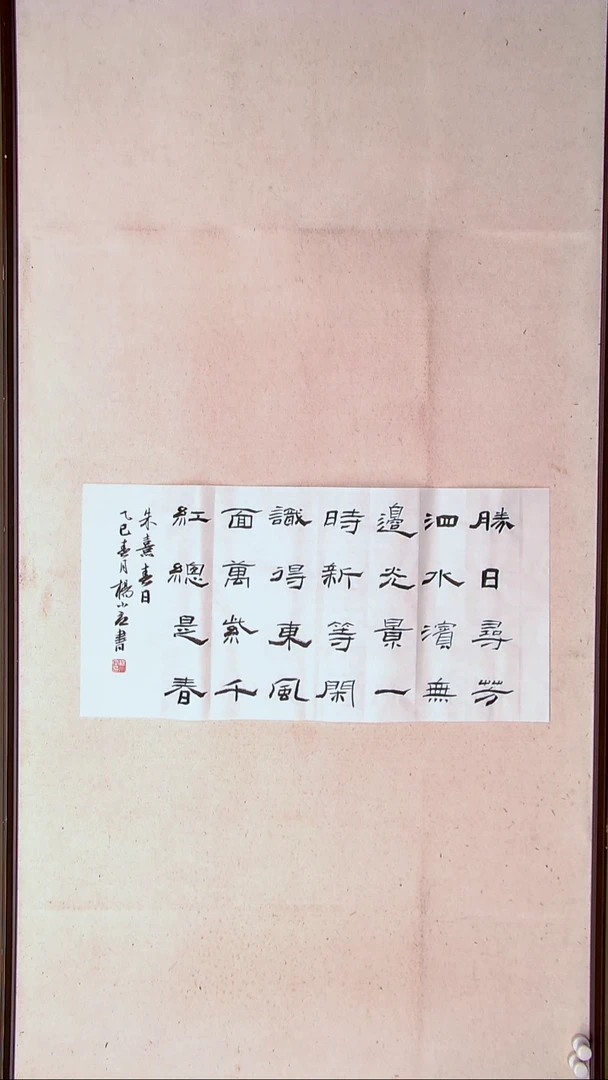 勝日尋芳
泗水濱無
邊光景一
時新等閑
識得東風
面萬紫千
紅總是春
朱熹春日
乙巳春月楊小君書